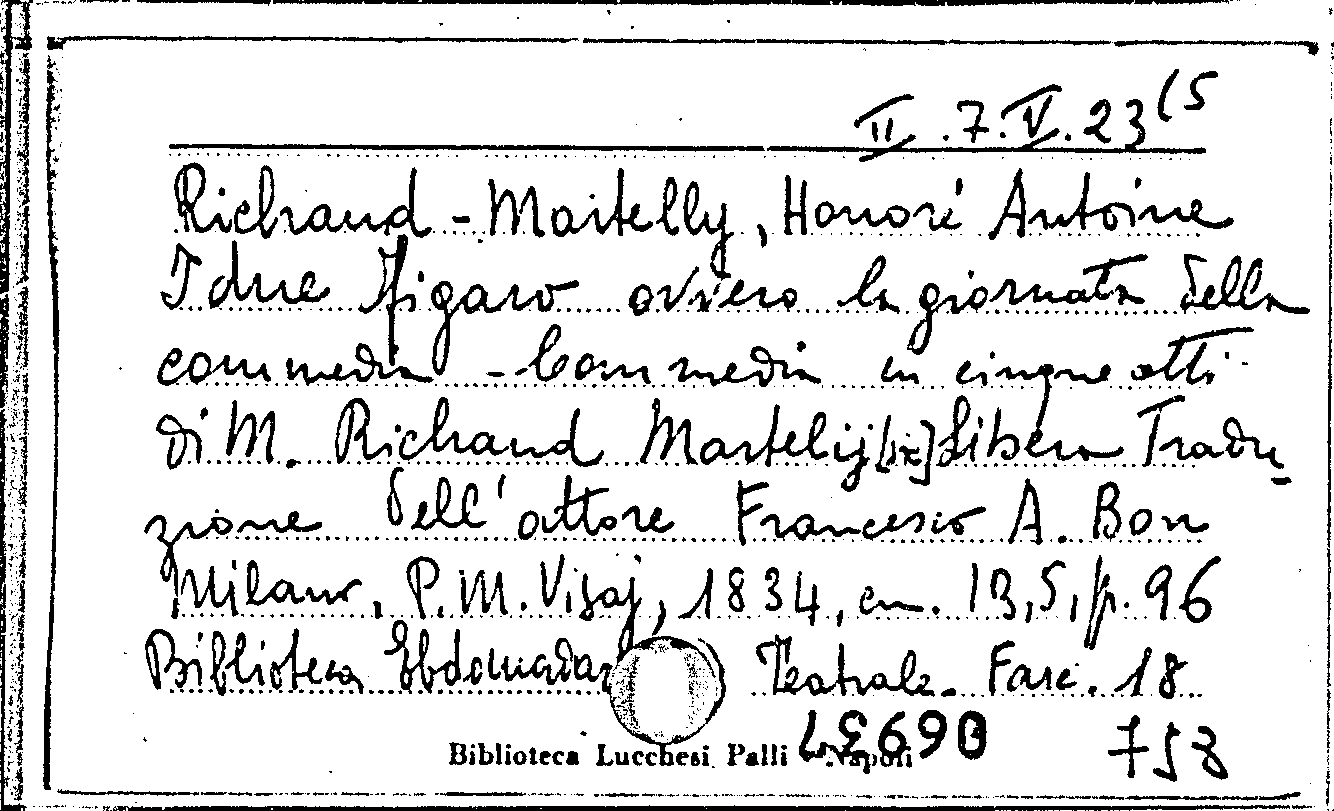 II.7.V.23(5
Richaud - Martelly, Honoré Antoine
I due Figaro ovvero la giornata della
commedia - Commedia in cinque atti
di M. Richaud Martelij [sic] Libera Tradu_
zione dell'attore Francesco A. Bon
Milano, P. M. Visaj, 1834, cm. 13,5, p. 96
Biblioteca Ebdomadar Teatrale. Fasc. 18
753
Biblioteca Lucchesi Palli Napoli